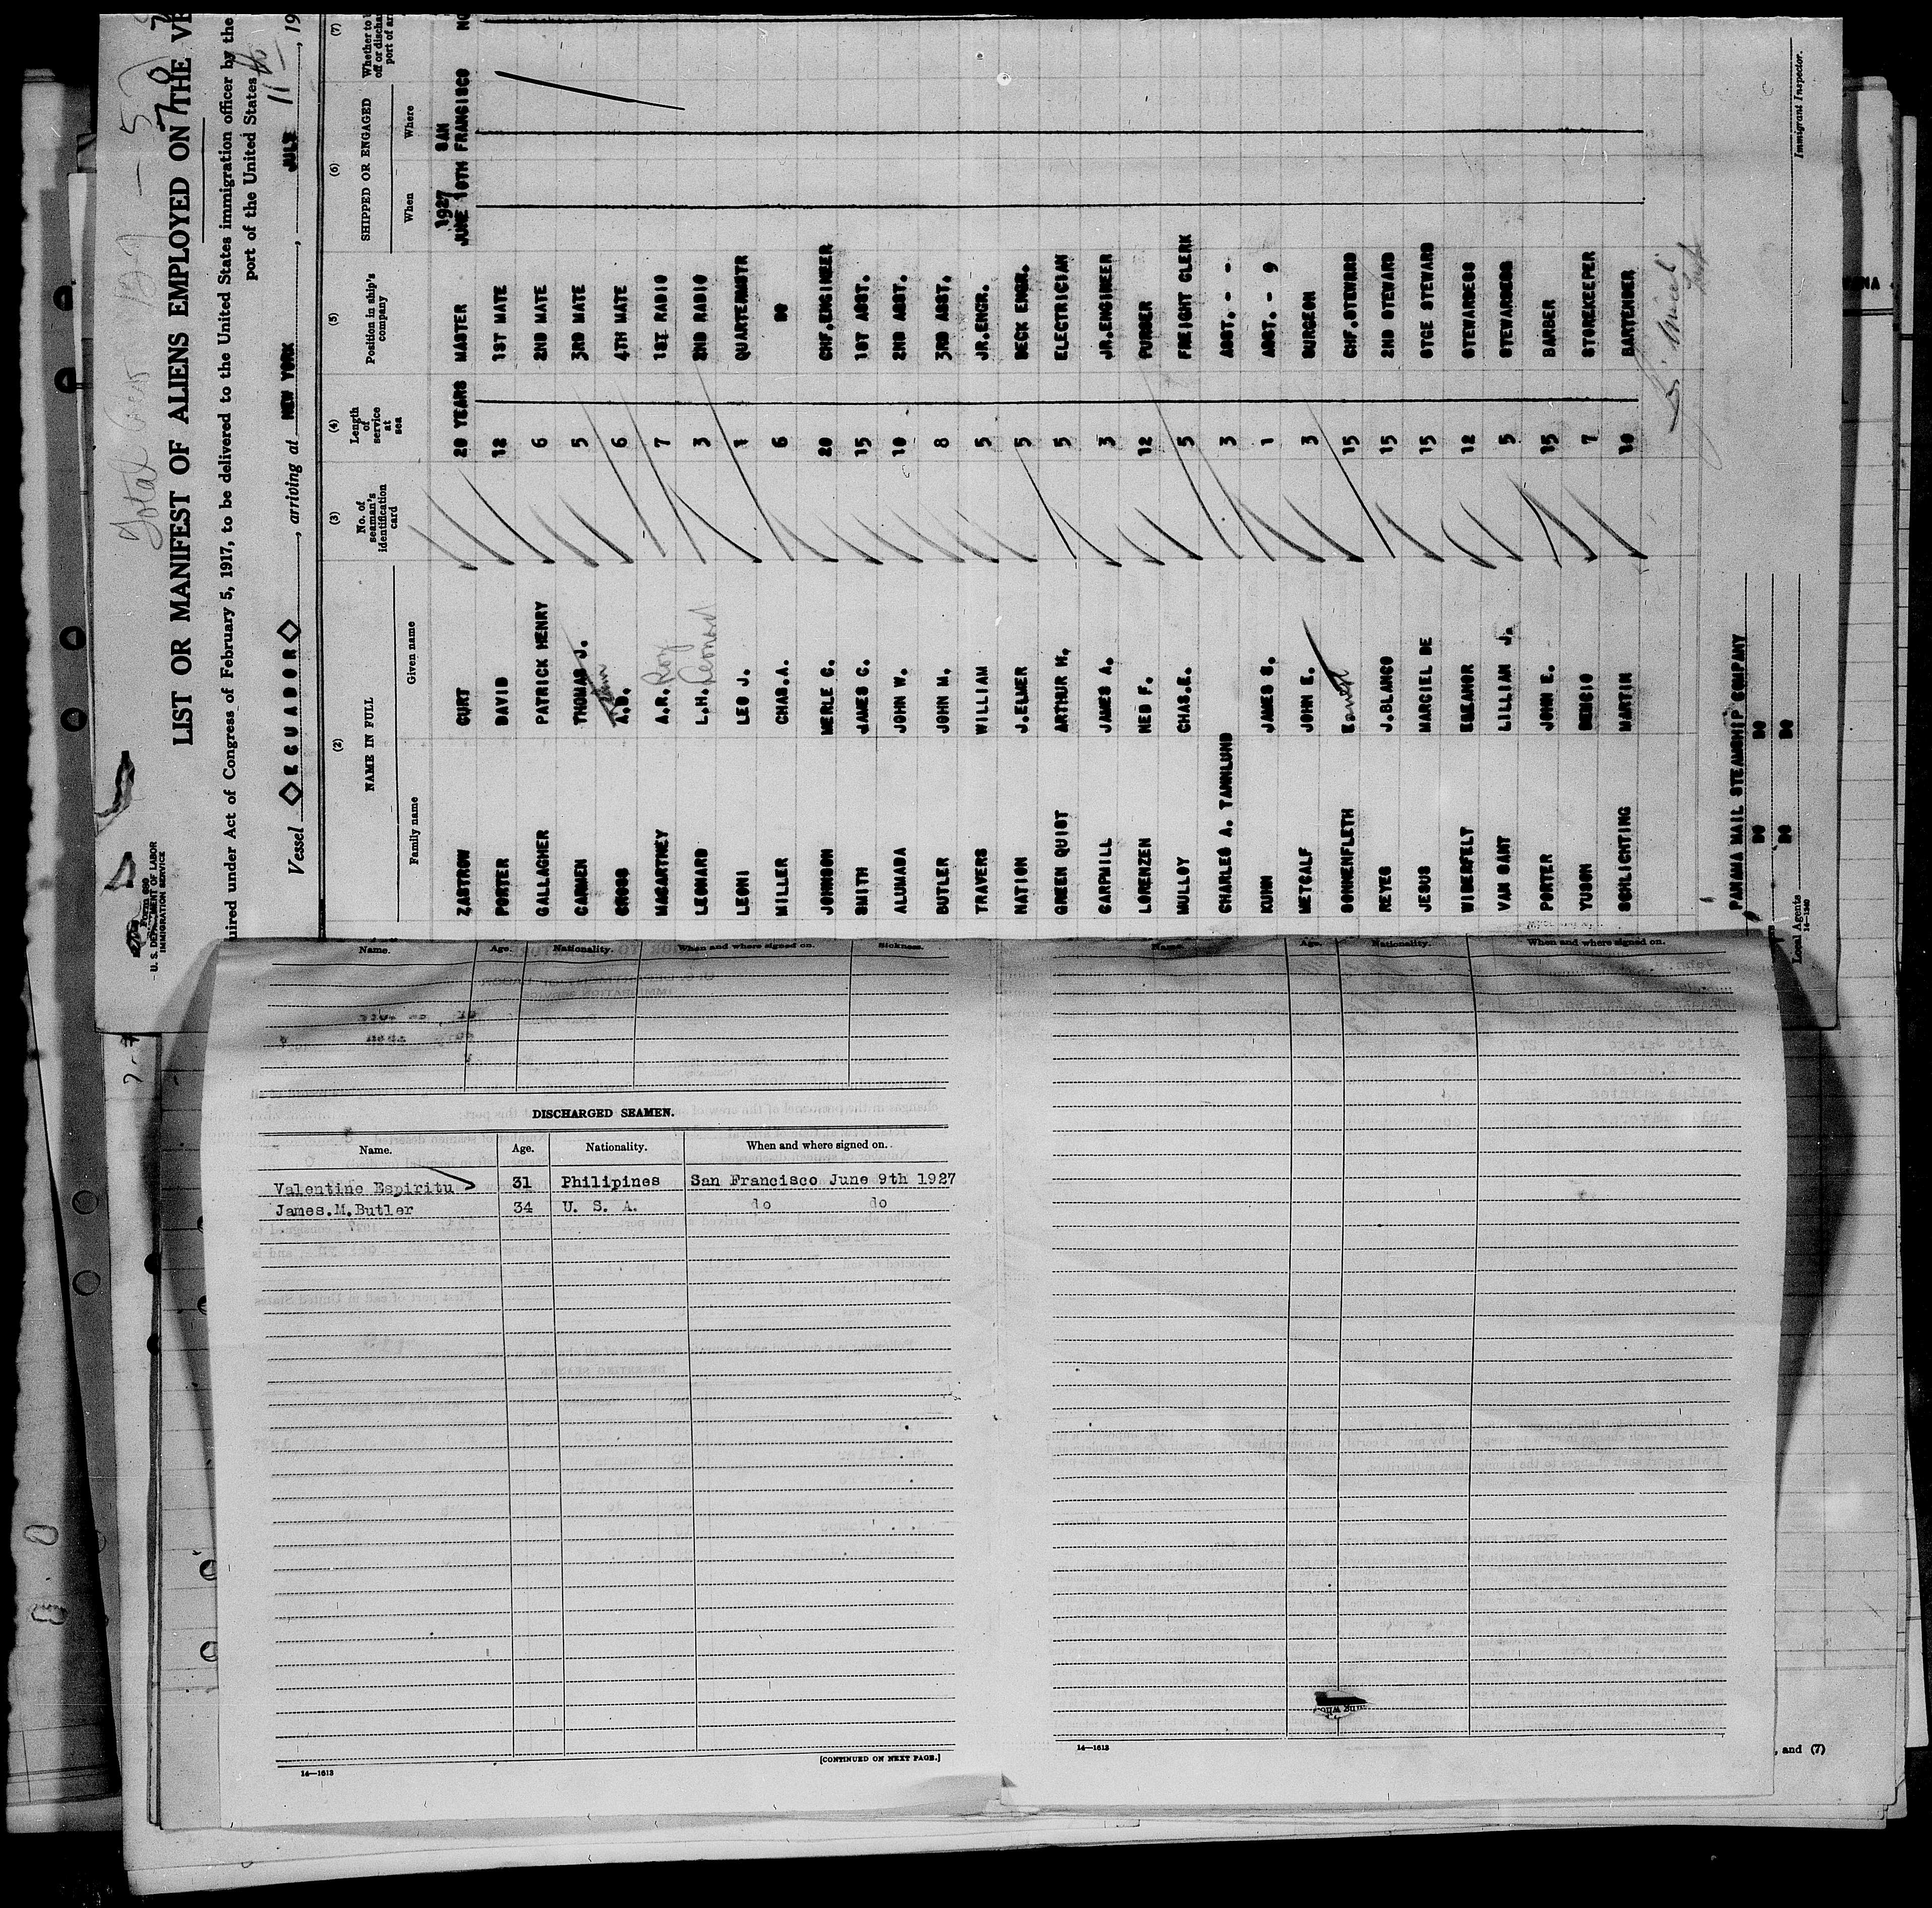 Total Crew
Form 680
U. S. DEPARTMENT OF LABOR
IMMIGRATION SERVICE
LIST OR MANIFEST OF ALIENS EMPLOYED ON THE VE
uired under Act of Congress of February 5, 1917, to be delivered to the United States immigration officer by the
port of the United States
Vessel ECUADOR, arriving at NEW YORK, JULY 11th, 19
(2) (3) (4) (5) (6) (7)
NAME IN FULL
Family name Given name
No. of seaman's identification card
Length of service at sea
Position in ship's company
SHIPPED OR ENGAGED
When Where
Whether to
off or discha
port of ar
1927 SAN
ZASTROW CURT 20 YEARS MASTER JUNE 10TH FRANCISCO NO
PORTER DAVID 12 1ST MATE
GALLAGHER PATRICK HENRY 6 2ND MATE
CARMEN THOMAS J. 5 3RD MATE
GROSS A.D. 6 4TH MATE
MACARTNEY A.R. Roy 7 1ST RADIO
LEONARD L.H. Leonard 3 2ND RADIO
LEONI LEO J. 1 QUARTERMSTR
MILLER CHAS.A. 6 DO
JOHNSON MERLE C. 20 CHF.ENGINEER
SMITH JAMES C. 15 1ST ASST.
ALUMADA JOHN W. 10 2ND ASST.
BUTLER JOHN M. 8 3RD ASST.
TRAVERS WILLIAM 5 JR.ENGR.
NATION J.ELMER 5 DECK ENGR.
GREEN QUIST ARTHUR H. 5 ELECTRICIAN
CARPHILL JAMES A. 3 JR.ENGINEER
LORENZEN NED F. 12 PURSER
MULLOY CHAS.E. 5 FREIGHT CLERK
CHARLES A. TANNLUND 3 ASST. - - -
KUHN JAMES S. 1 ASST. - 9
METCALF JOHN E. 3 SURGEON
SONNENFLETH Ernest 15 CHF.STEWARD
REYES J.BLANCO 15 2ND STEWARD
JESUS MARCIEL DE 15 STGE STEWARD
WIDERFELT ELEANOR 12 STEWARDESS
VAN SANT LILLIAN J. 5 STEWARDESS
PORTER JOHN E. 15 BARBER
YUSON BENCIO 7 STOREKEEPER
SCHLICHTING MARTIN 10 BARTENDER
PANAMA MAIL STEAMSHIP COMPANY
DO DO
DO DO
Local Agents
14-1240
Immigrant Inspector.
Name. Age. Nationality. When and where signed on. Sickness.
DISCHARGED SEAMEN.
Name. Age. Nationality. When and where signed on.
Valentine Espiritu 31 Philipines San Francisco June 9th 1927
James.M.Butler 34 U. S. A. do do
[CONTINUED ON NEXT PAGE.]
14—1613
Name. Age. Nationality. When and where signed on.
14—1613
, and (7)